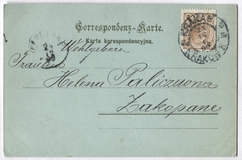 Correspondenz-Karte.
Karta korespondencyjna.
Wohlgeboren
Fräulein
Helena Paliczuwna
Zakopane
KRAKÓW